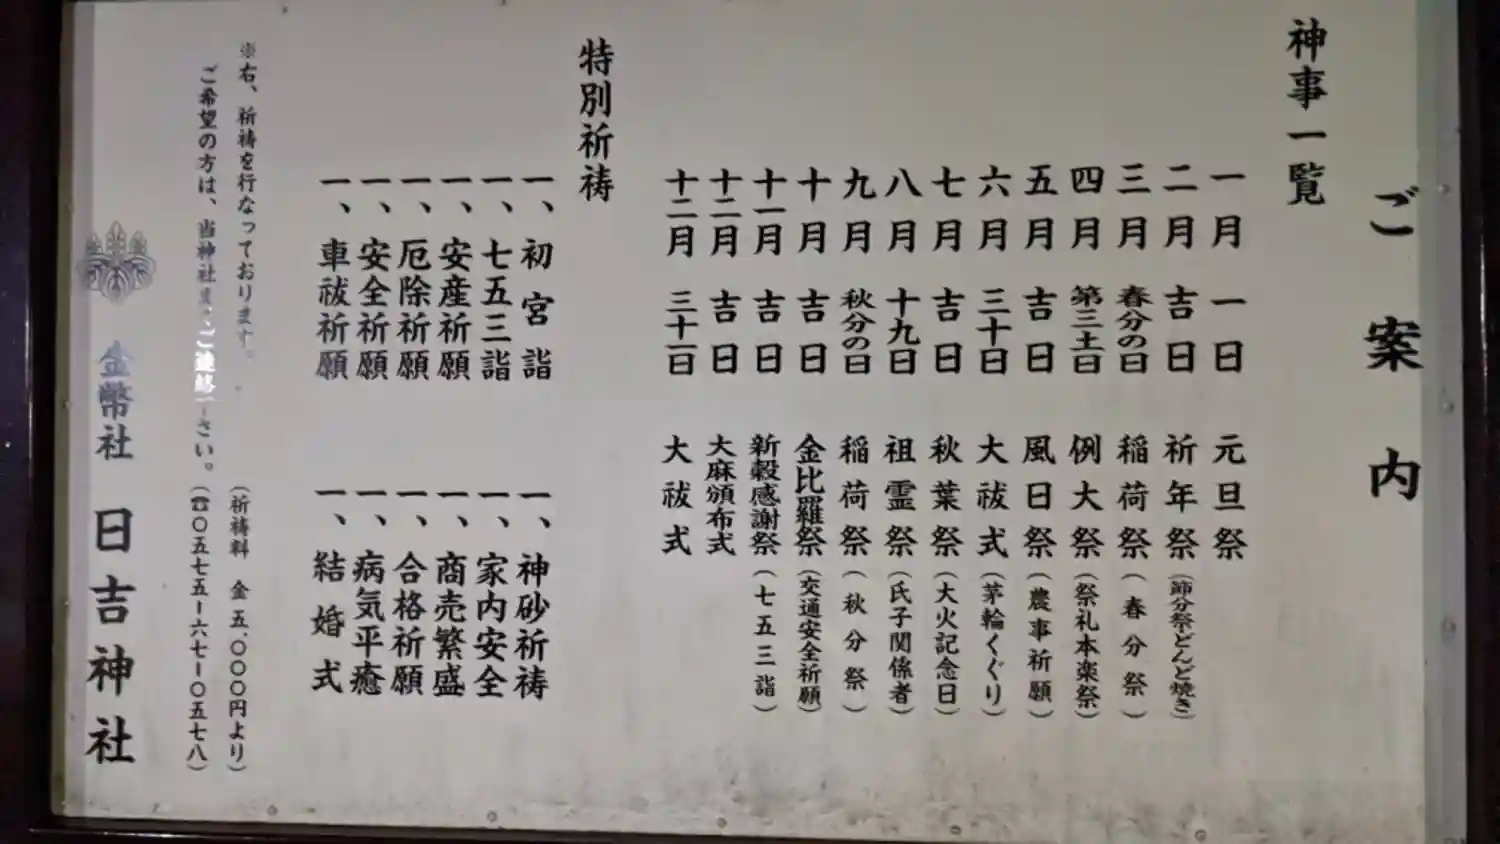 ご案内
神事一覧
一月 一日 元旦祭
二月 吉日 祈年祭(節分祭どんど焼き)
三月 春分の日 稲荷祭(春分祭)
四月 第三土日 例大祭(祭礼本楽祭)
五月 吉日 風日祭(農事祈願)
六月 三十日 大祓式(茅輪くぐり)
七月 吉日 秋葉祭(大火記念日)
八月 十九日 祖霊祭(氏子関係者)
九月 秋分の日 稲荷祭(秋分祭)
十月 吉日 金比羅祭(交通安全祈願)
十一月 吉日 新穀感謝祭(七五三詣)
十二月 吉日 大麻頒布式
十二月 三十一日 大祓式
特別祈祷
一、初宮詣 一、神砂祈祷
一、七五三詣 一、家内安全
一、安産祈願 一、商売繁盛
一、厄除祈願 一、合格祈願
一、安全祈願 一、病気平癒
一、車祓祈願 一、結婚式
※右、祈祷を行なっております。(祈祷料 金五、〇〇〇円より)
ご希望の方は、当神社ま ご連絡 さい。(☎〇五七五ー六七ー〇五七八)
金幣社 日吉神社